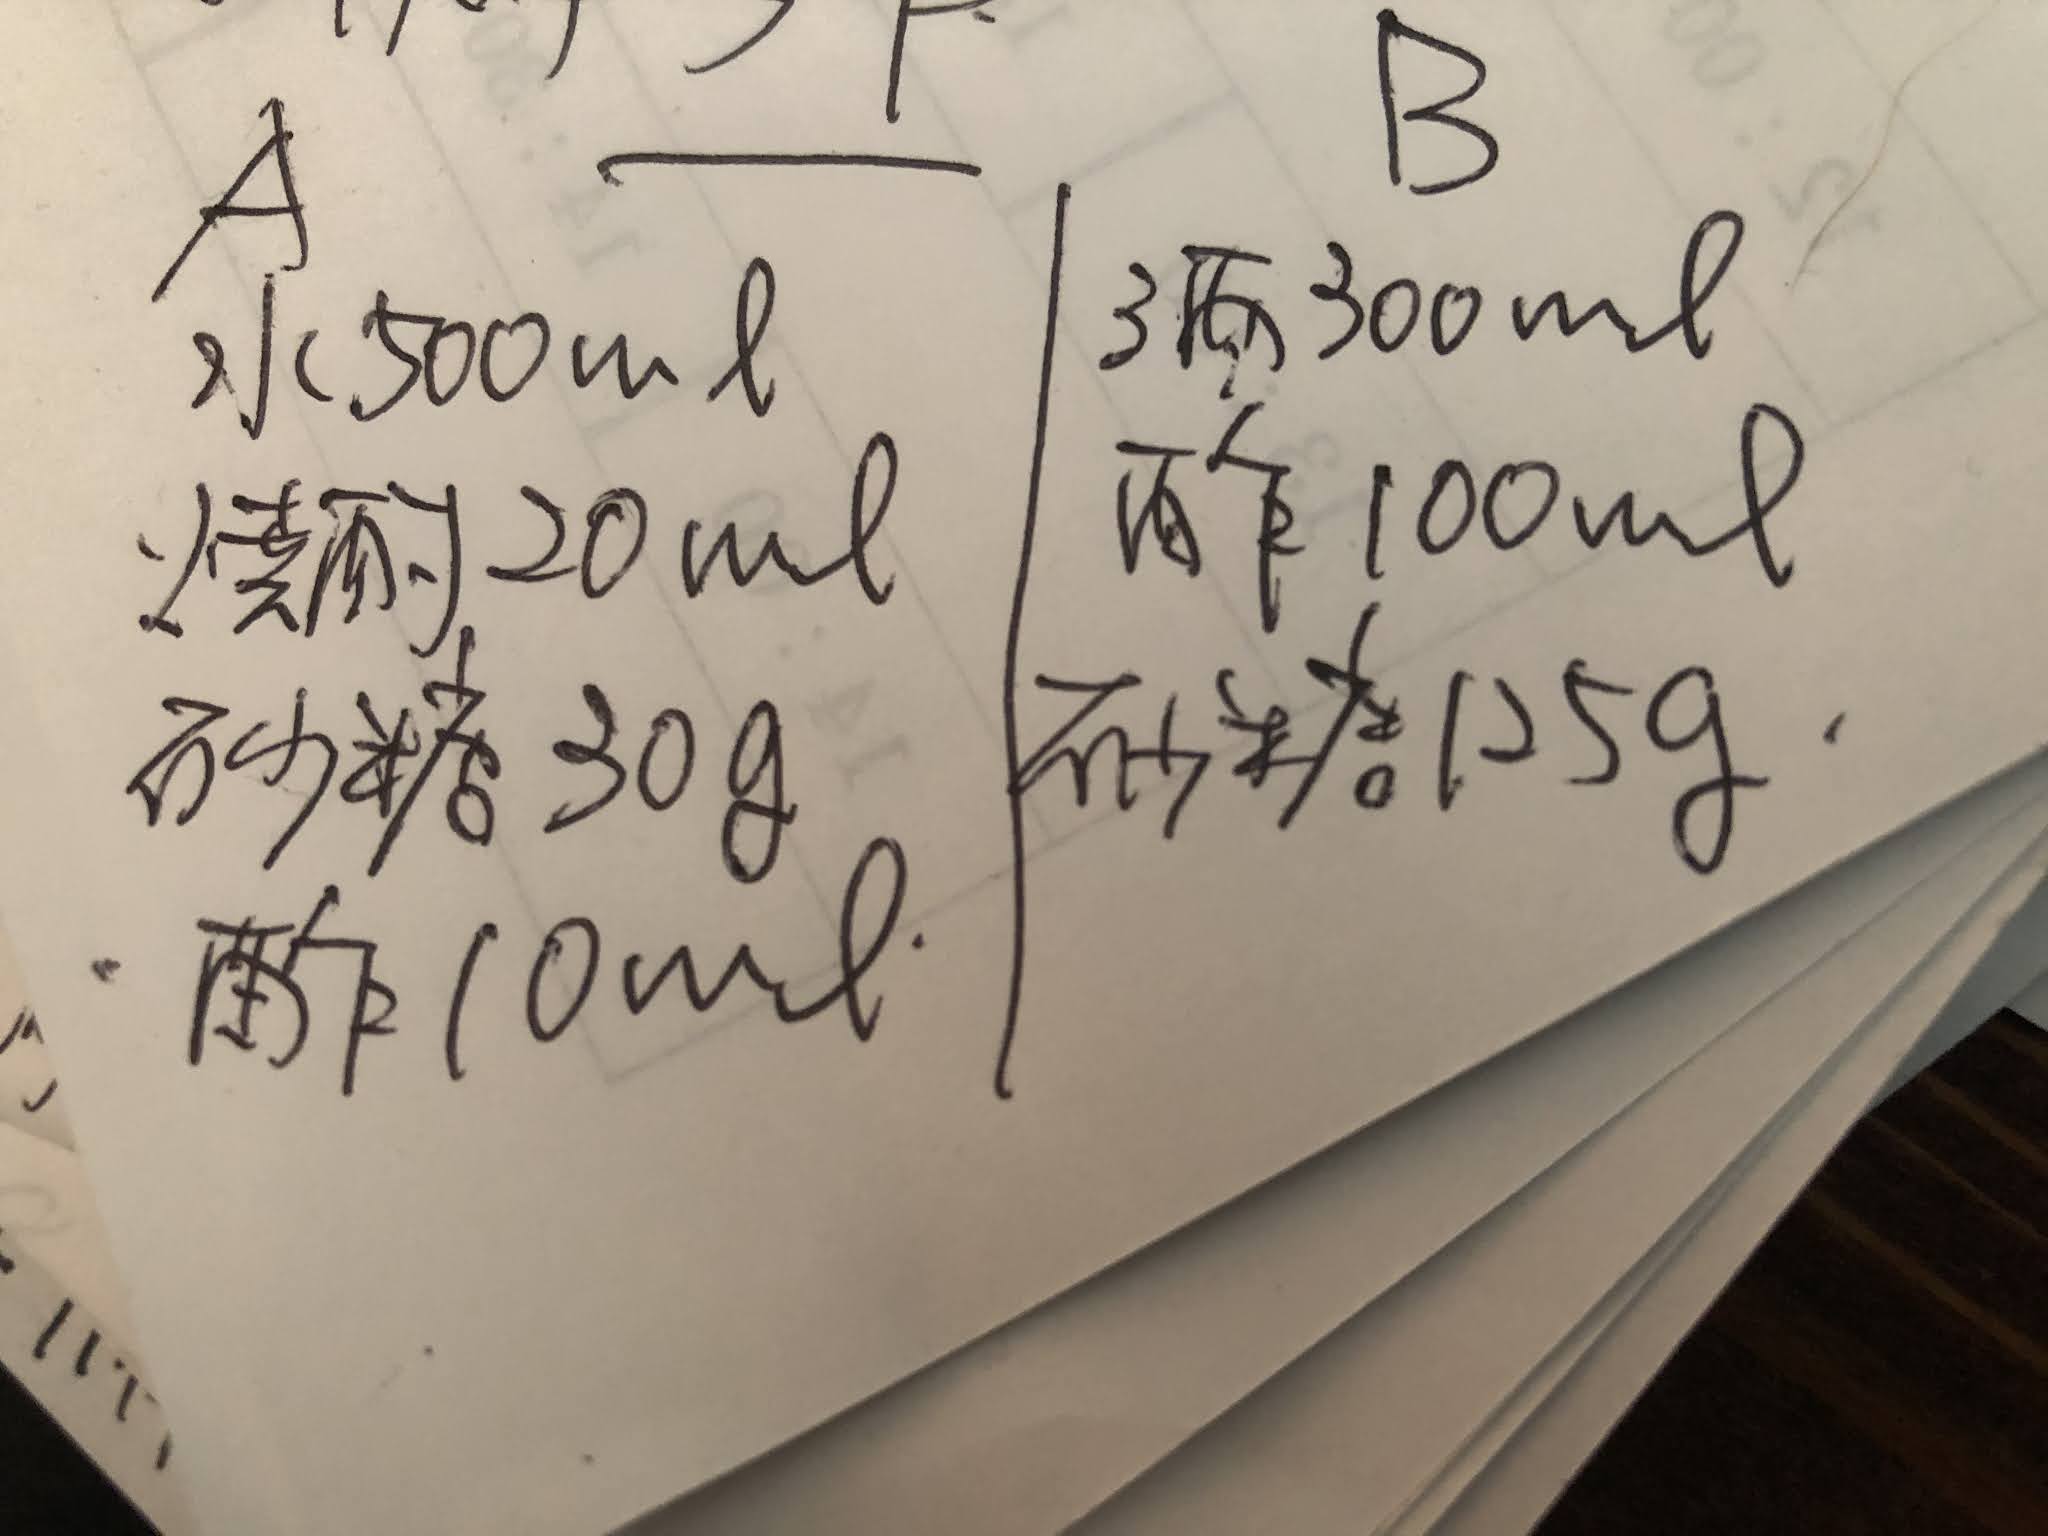 A
水500ml
焼酎20ml
砂糖30g
酢10ml.
B
酒300ml
酢100ml
砂糖125g.